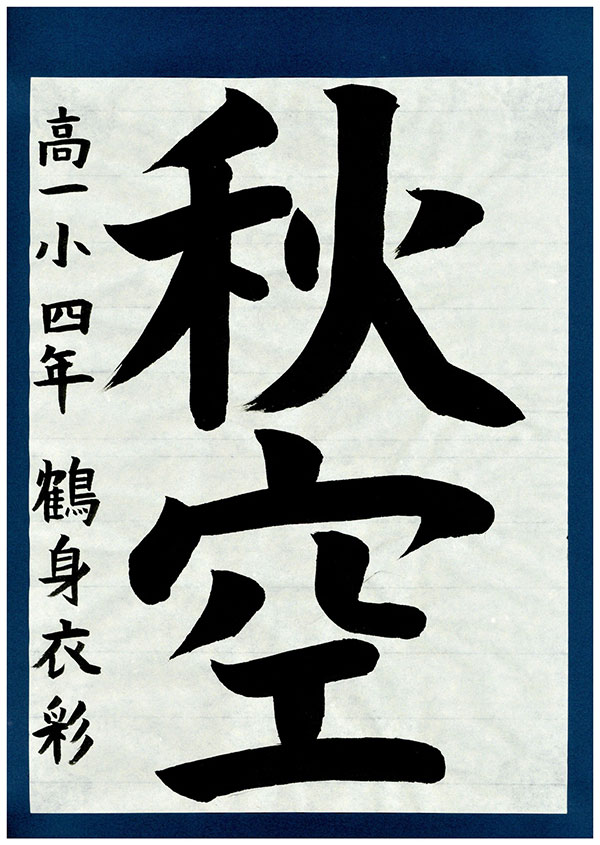 秋空
高一小四年 鶴身衣彩